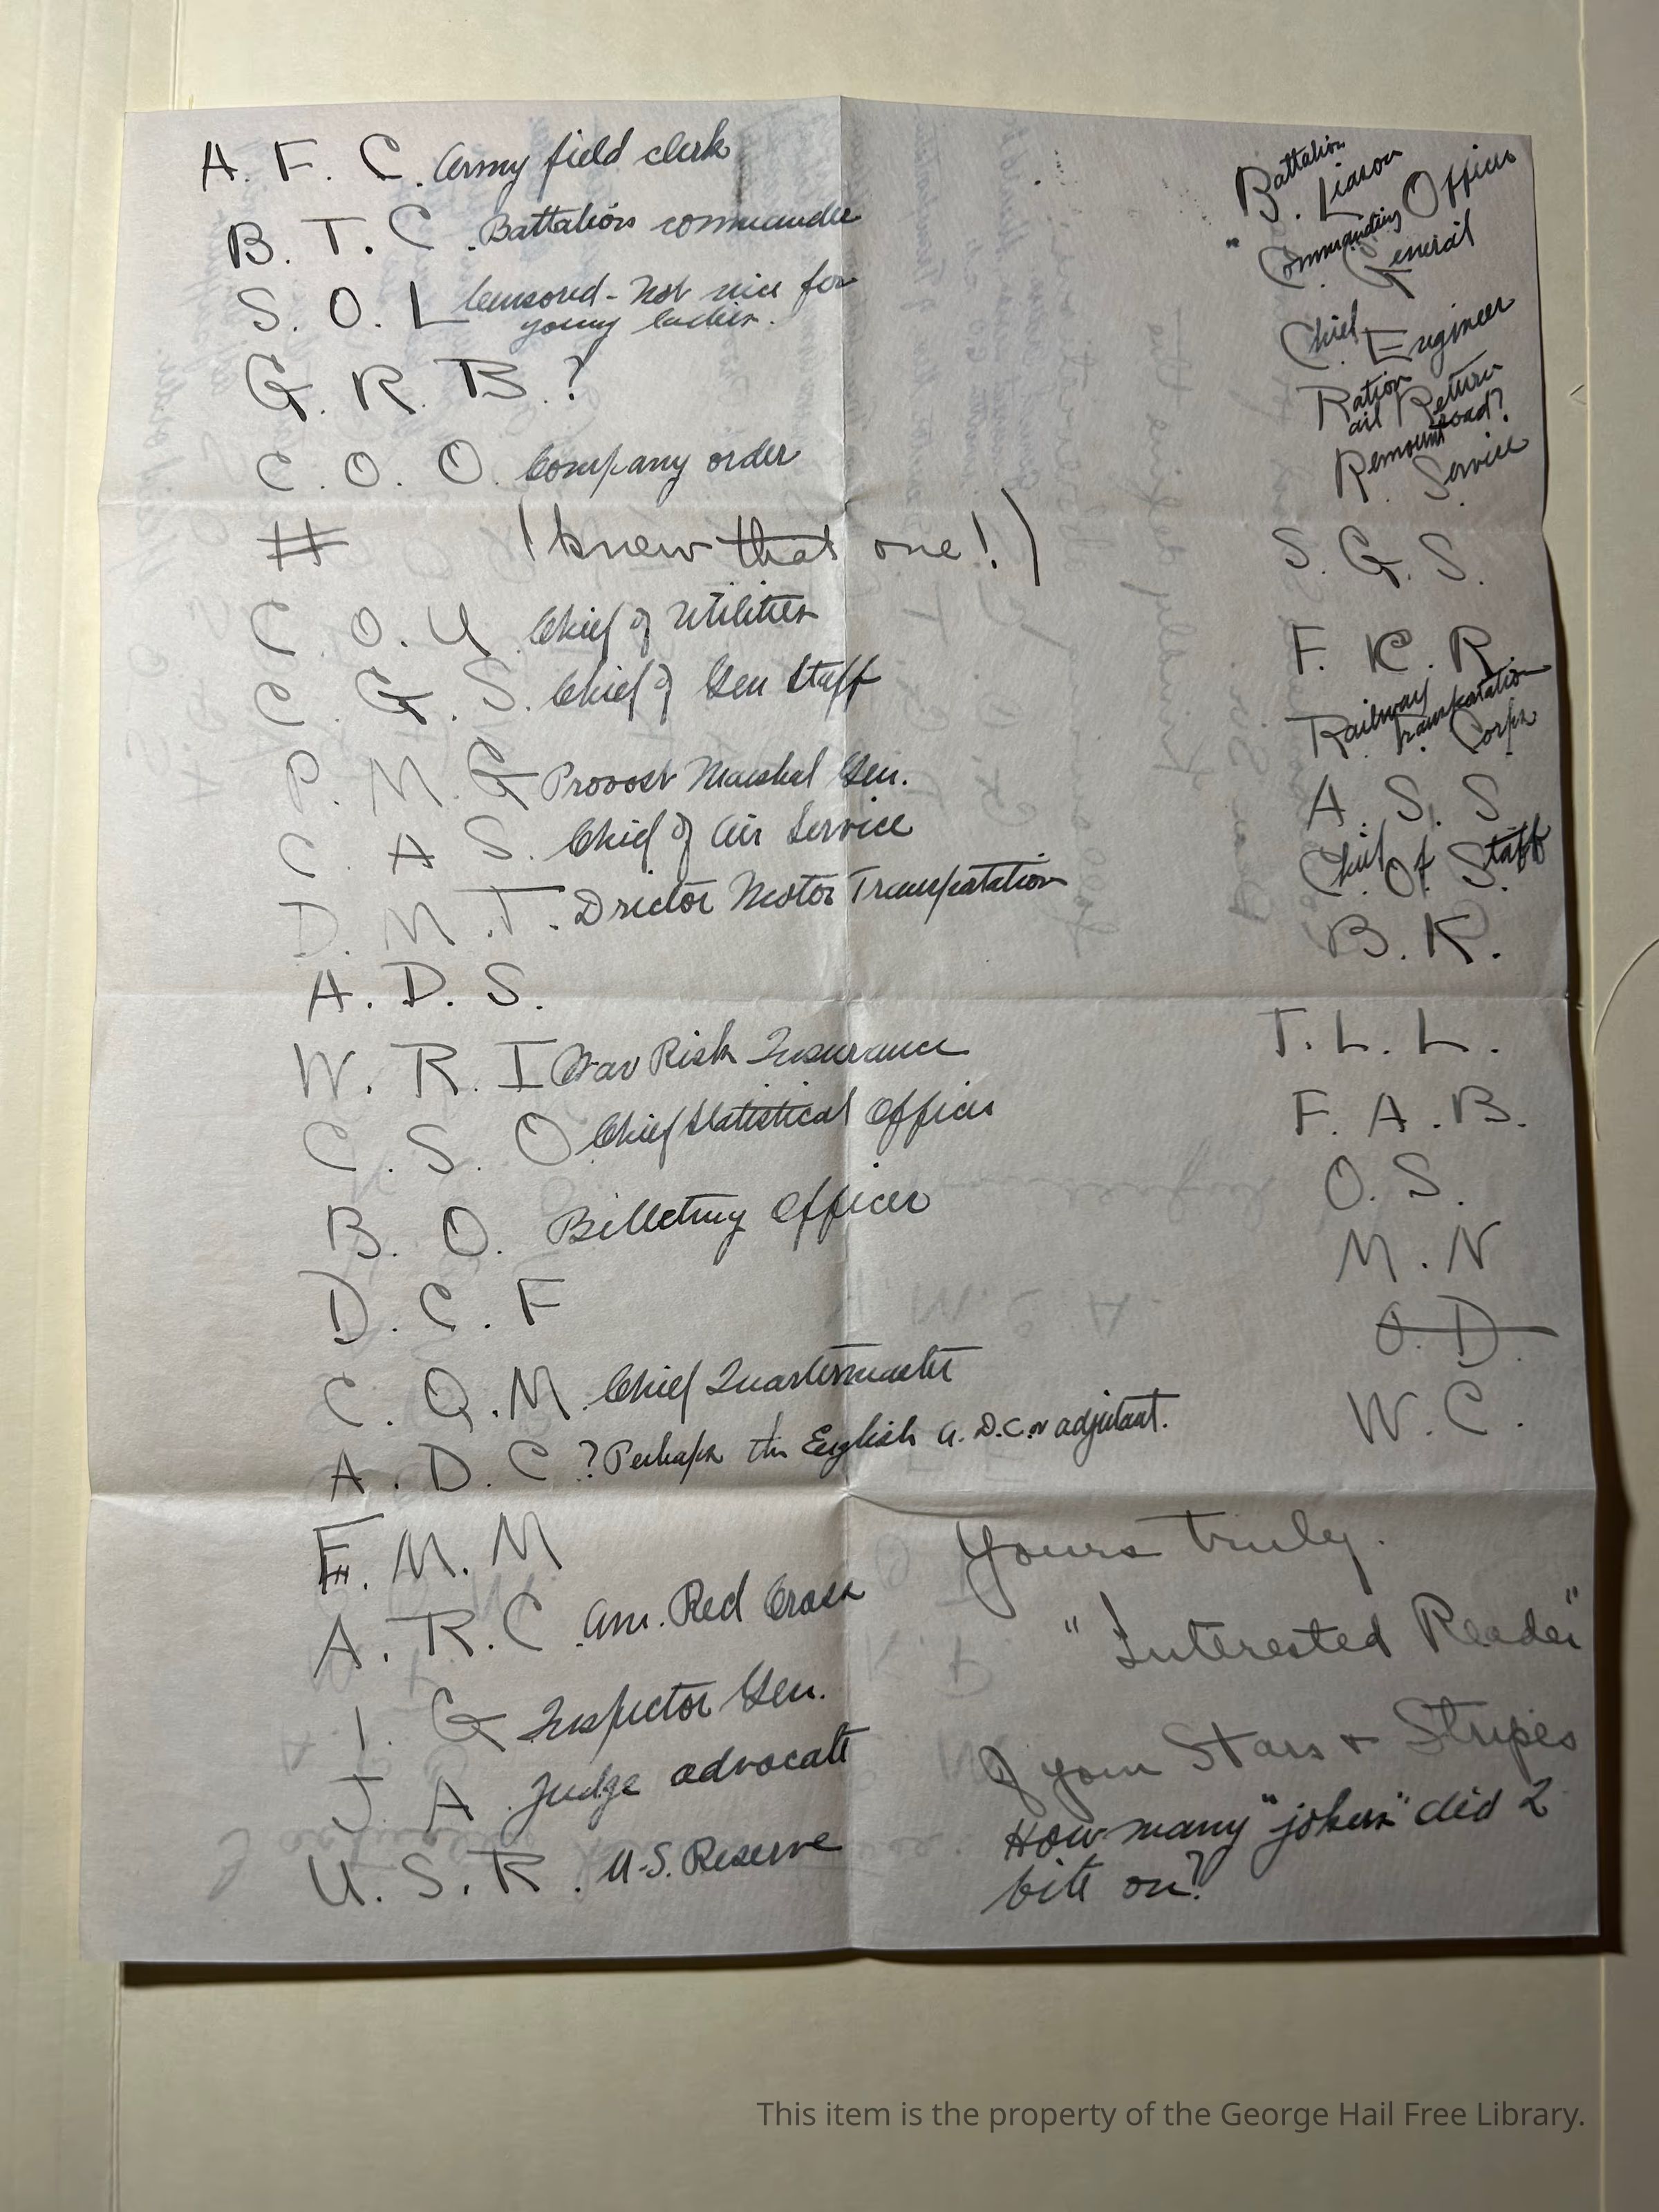 A. F. C. Army field clerk
B. T. C. Battalion commander
S. O. L Censored - Not nice for
young ladies.
G. R. B. ?
C. O. O. Company order
# (knew that one!)
C. O. U Chief of Utilities
C. G. S. Chief of Gen Staff
P. M. G Provost Marshal Gen.
C. A S. Chief of Air Service
D. M. T. Drictor Motor Transportation
A. D. S.
W. R. I War Risk Insurance
C. S. O Chief Statistical Officer
B. O. Billeting Officer
D. C. F
C. Q. M. Chief Quartermaster
A. D. C ? Perhaps the English A. D. C. or adjutant.
F. M. M
A. R. C. Am. Red Cross
I. G Inspector Gen.
J. A. Judge advocate
U. S. R. U.S. Reserve
Battalion
B. Liason Officer
Commanding
C. General
Chief Engineer
Ration Return
ail road?
Remount
R. Service
S. G. S.
F. R. R.
Railway
Transportation
Corps
A. S. S
Chief Of Staff
B. K.
T. L. L.
F. A. B.
O. S.
M. N
O. D.
W. C.
Yours truly.
"Interested Reader"
of your Stars & Stripes
How many "jokers" did I
bite on?
This item is the property of the George Hail Free Library.